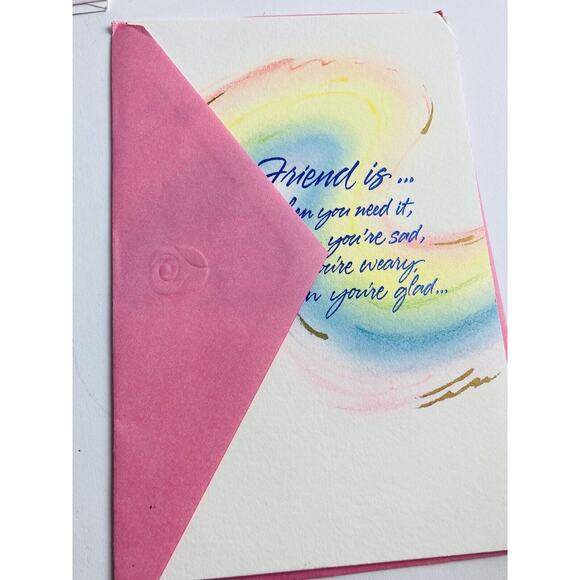 Friend is...
you need it,
you're sad,
you're weary,
you're glad...